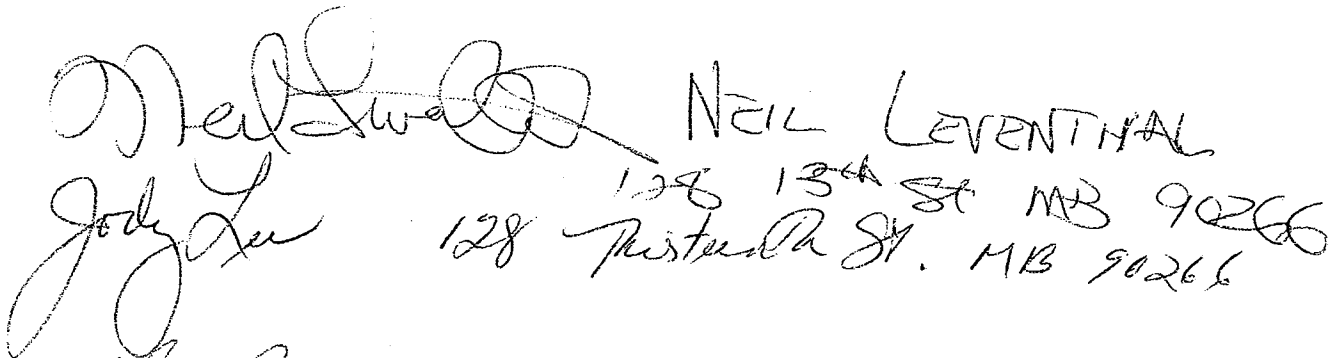 Neil NEIL LEVENTHAL
128 13th St MB 90266
Jody Lee 128 Thirteenth St. MB 90266